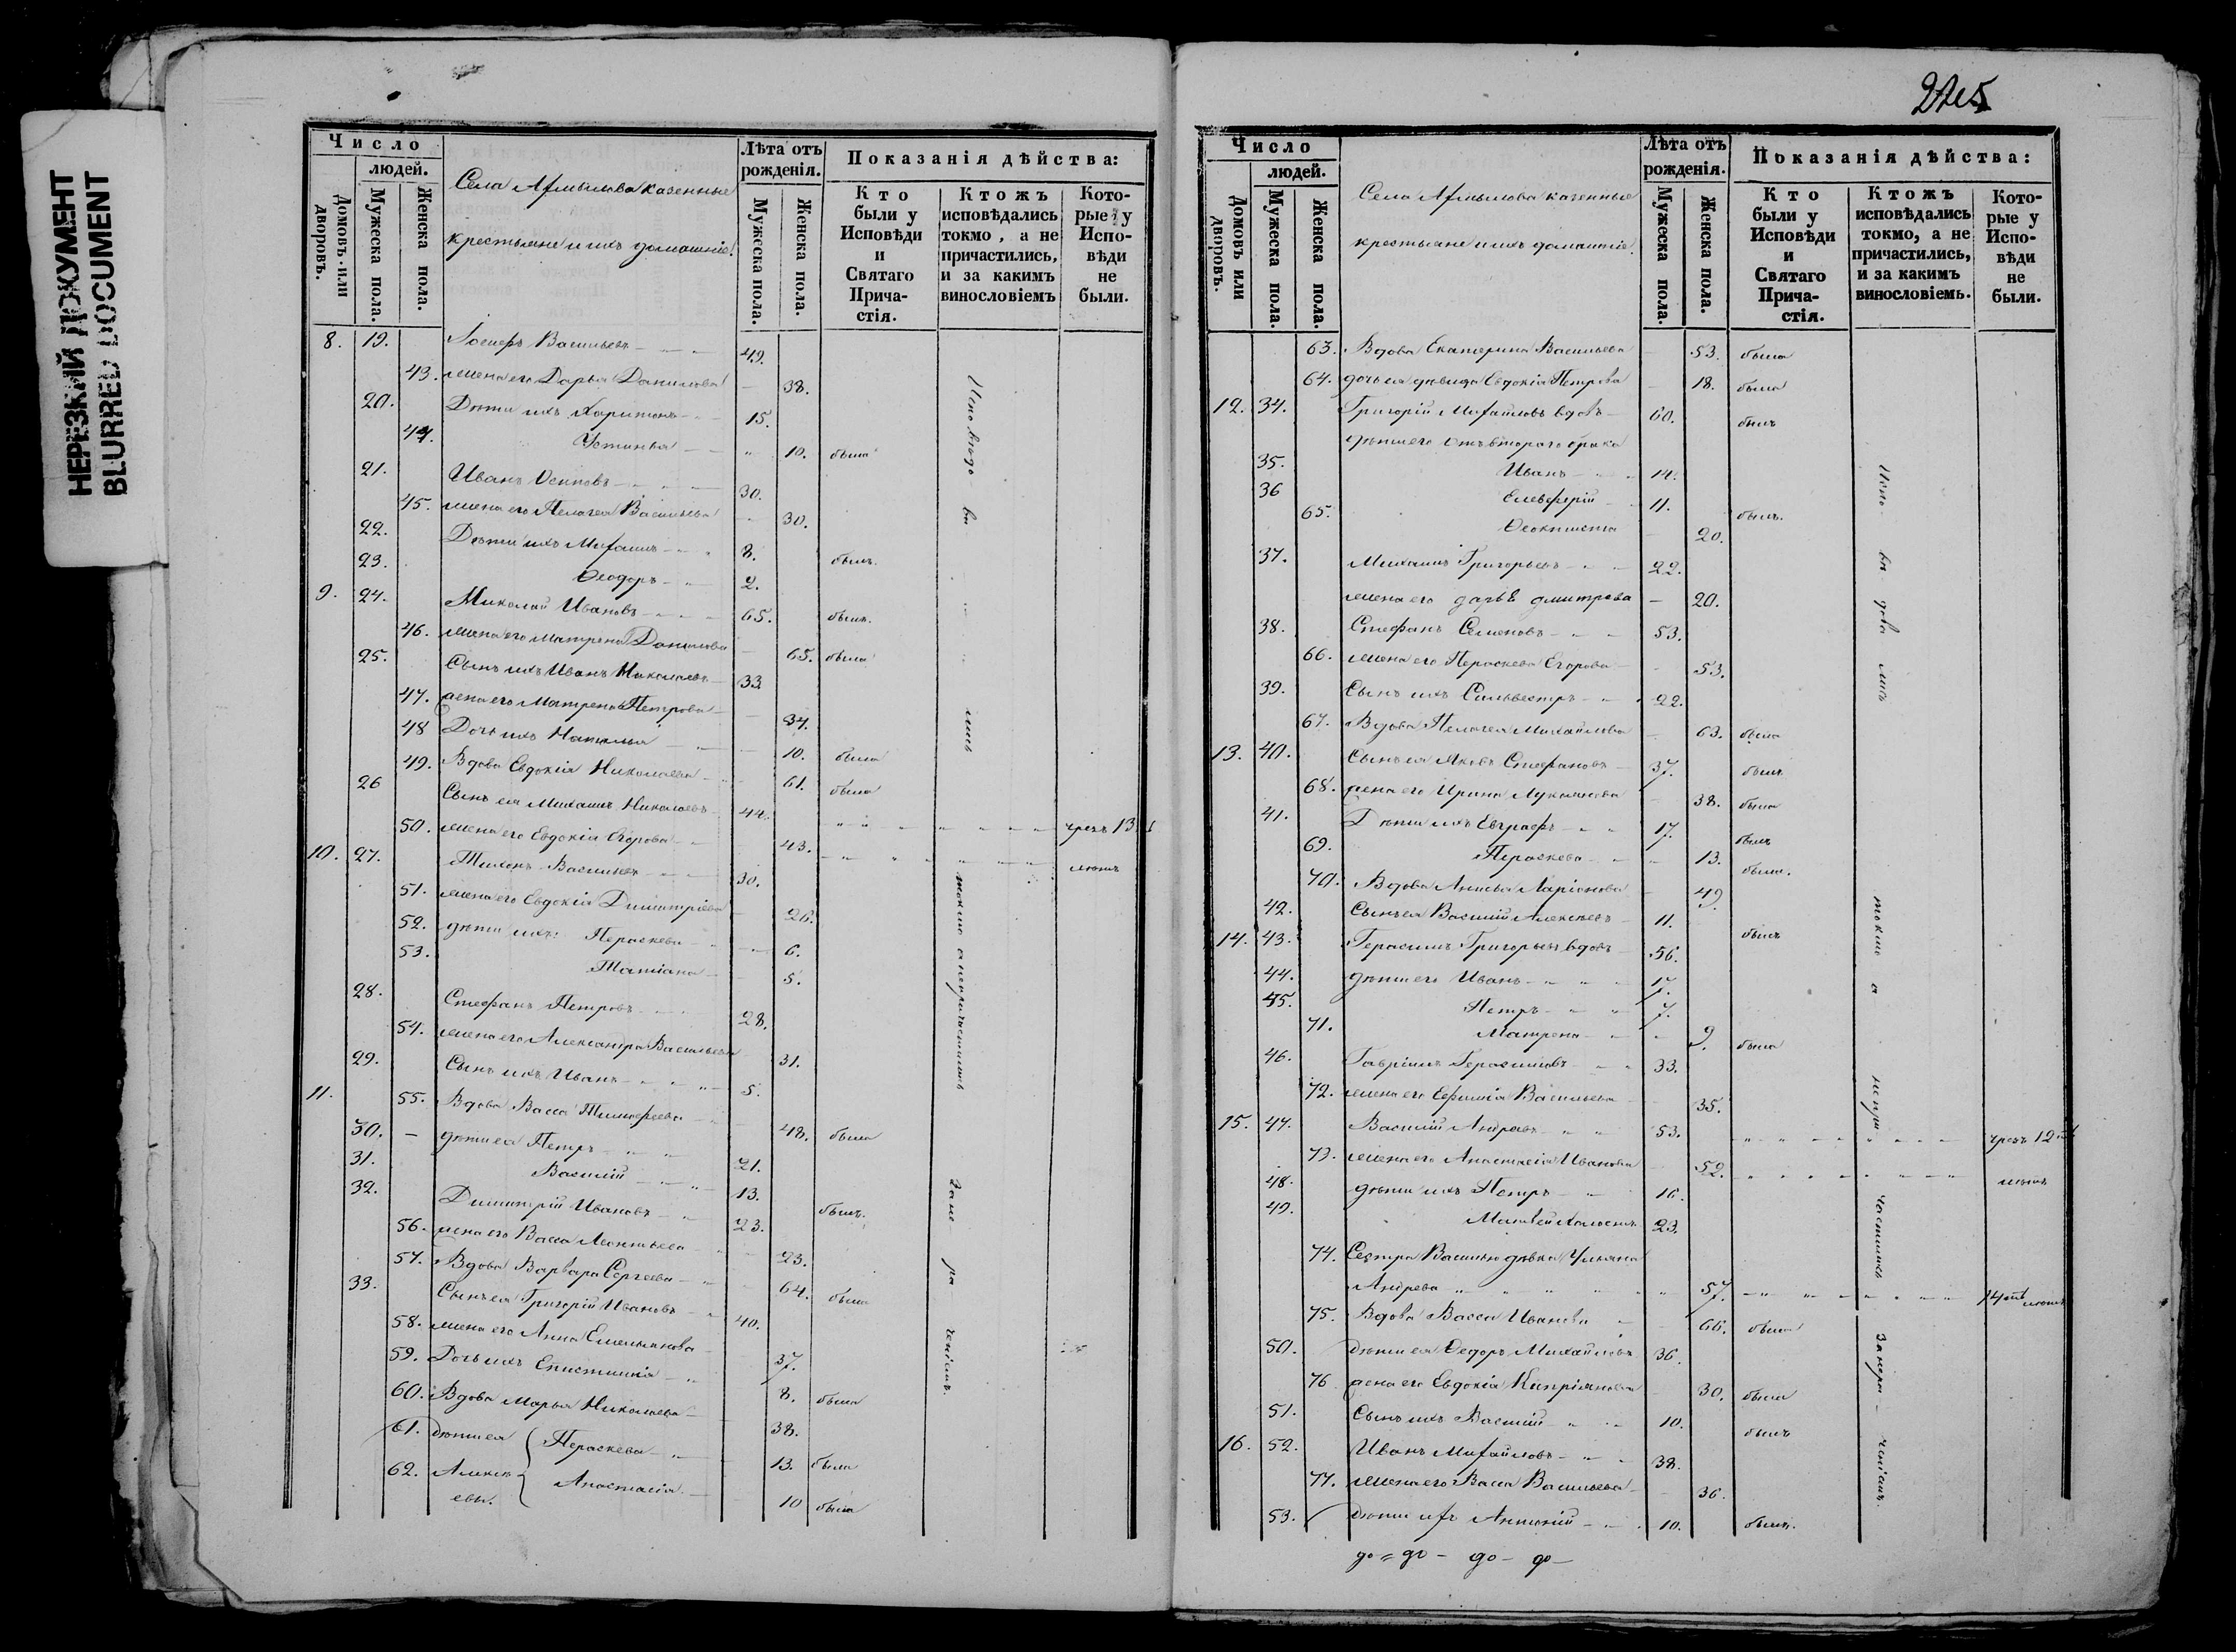 НЕРЕЗКИЙ ДОКУМЕНТ
BLURRED DOCUMENT
Число
людей.
Домовъ или дворовъ.
Мужеска пола.
Женска пола.
казенные
крестьяне и ихъ домашніе.
Лѣта отъ рожденія.
Мужеска пола.
Женска пола.
Показанія дѣйства:
Кто были у Исповѣди и Святаго Прича-стія.
Ктожъ исповѣдались токмо, а не причастились, и за какимъ винословіемъ
Кото-рые у Испо-вѣди не были.
8. 19. Васильевъ 49.
43. жена его Дарья Данилова 38.
20. Дѣти ихъ Харитонъ 15.
44. Устинья 10. была
21. Иванъ Осиповъ 30.
45. жена его Пелагея Васильева 30.
22. Дѣти ихъ Михаилъ 8. былъ.
23. Ѳеодоръ 2.
9. 24. Николай Ивановъ 65. былъ.
46. жена его Матрена Данилова 65. была
25. Сынъ ихъ Иванъ Николаевъ 33
47. жена его Матрена Петрова 34.
48 Дочь ихъ Наталья 10. была
49. Вдова Евдокія Николаева 61. была
26 Сынъ ея Михаилъ Николаевъ 44. чрезъ 13
50. жена его Евдокія Егорова 43.
10. 27. Тихонъ Васильевъ 30.
51. жена его Евдокія Димитріева 26.
52. дѣти ихъ: Параскева 6.
53. Татіана 5.
28. Стефанъ Петровъ 28.
54. жена его Александра Васильева 31.
29. Сынъ ихъ Иванъ 5.
11. 55. Вдова Васса Тимофеева 48. была
30. – дѣти ея Петръ 21.
31. Василій 13. былъ.
32. Димитрій Ивановъ 23.
56. жена его Васса Леонтьева 23.
57. Вдова Варвара Сергеева 64. была
33. Сынъ ея Григорій Ивановъ 40.
58. жена его Анна Емельянова 37.
59. Дочь ихъ Епистимія 8. была
60. Вдова Марья Николаева 38.
61. дѣти ея Параскева 13. была
62. Алексѣевы. Анастасія 10 была
токмо а непричастились
Число
людей.
Домовъ или дворовъ.
Мужеска пола.
Женска пола.
казенные
крестьяне и ихъ домашніе.
Лѣта отъ рожденія.
Мужеска пола.
Женска пола.
Показанія дѣйства:
Кто были у Исповѣди и Святаго Прича-стія.
Ктожъ исповѣдались токмо, а не причастились, и за какимъ винословіемъ.
Кото-рые у Испо-вѣди не были.
63. Вдова Екатерина Васильева 53. была
64. дочь ея дѣвица Евдокія Петрова 18. была
12. 34. Григорій Михайловъ вдовъ 60. былъ
дѣти его отъ втораго брака
35. Иванъ 14.
36 Елевферій 11. былъ.
65. Ѳеоктиста 20.
37. Михаилъ Григорьевъ 22.
жена его дарья дмитрева 20.
38. Стефанъ Семеновъ 53.
66. жена его Параскева Егорова 53.
39. Сынъ ихъ Сильвестръ 22.
67. Вдова Пелагея Михайлова 63. была
13. 40. Сынъ ея Яковъ Стефановъ 37. былъ
68. жена его Ирина Лукьянова 38. была
41. Дѣти ихъ Евграфъ 17. былъ
69. Параскева 13. была.
70. Вдова Анисья Ларіонова 49.
42. Сынъ ея Василій Алексѣевъ 11. былъ
14. 43. Герасимъ Григорьевъ вдовъ 56.
44. дѣти его Иванъ 17.
45. Петръ 7.
71. Матрена 9. была
46. Гавріилъ Герасимовъ 33.
72. жена его Ефимія Васильева 35.
15. 47. Василій Андреевъ 53. чрезъ 12
73. жена его Анастасія Иванова 52.
48. дѣти ихъ Петръ 16.
49. Матвей 23.
74. Сестра Василью дѣвка Ульяна
Андрева 57. 14
75. Вдова Васса Иванова 66. была
50. дѣти ея Ѳедоръ Михайловъ 36.
76 жена его Евдокія Кипріянова 30. была
51. Сынъ ихъ Василій 10. былъ
16. 52. Иванъ Михайловъ 38.
77. жена его Васса Васильева 36.
53. дѣти ихъ Антоній 10. былъ.
токмо а
до = до – до – до –